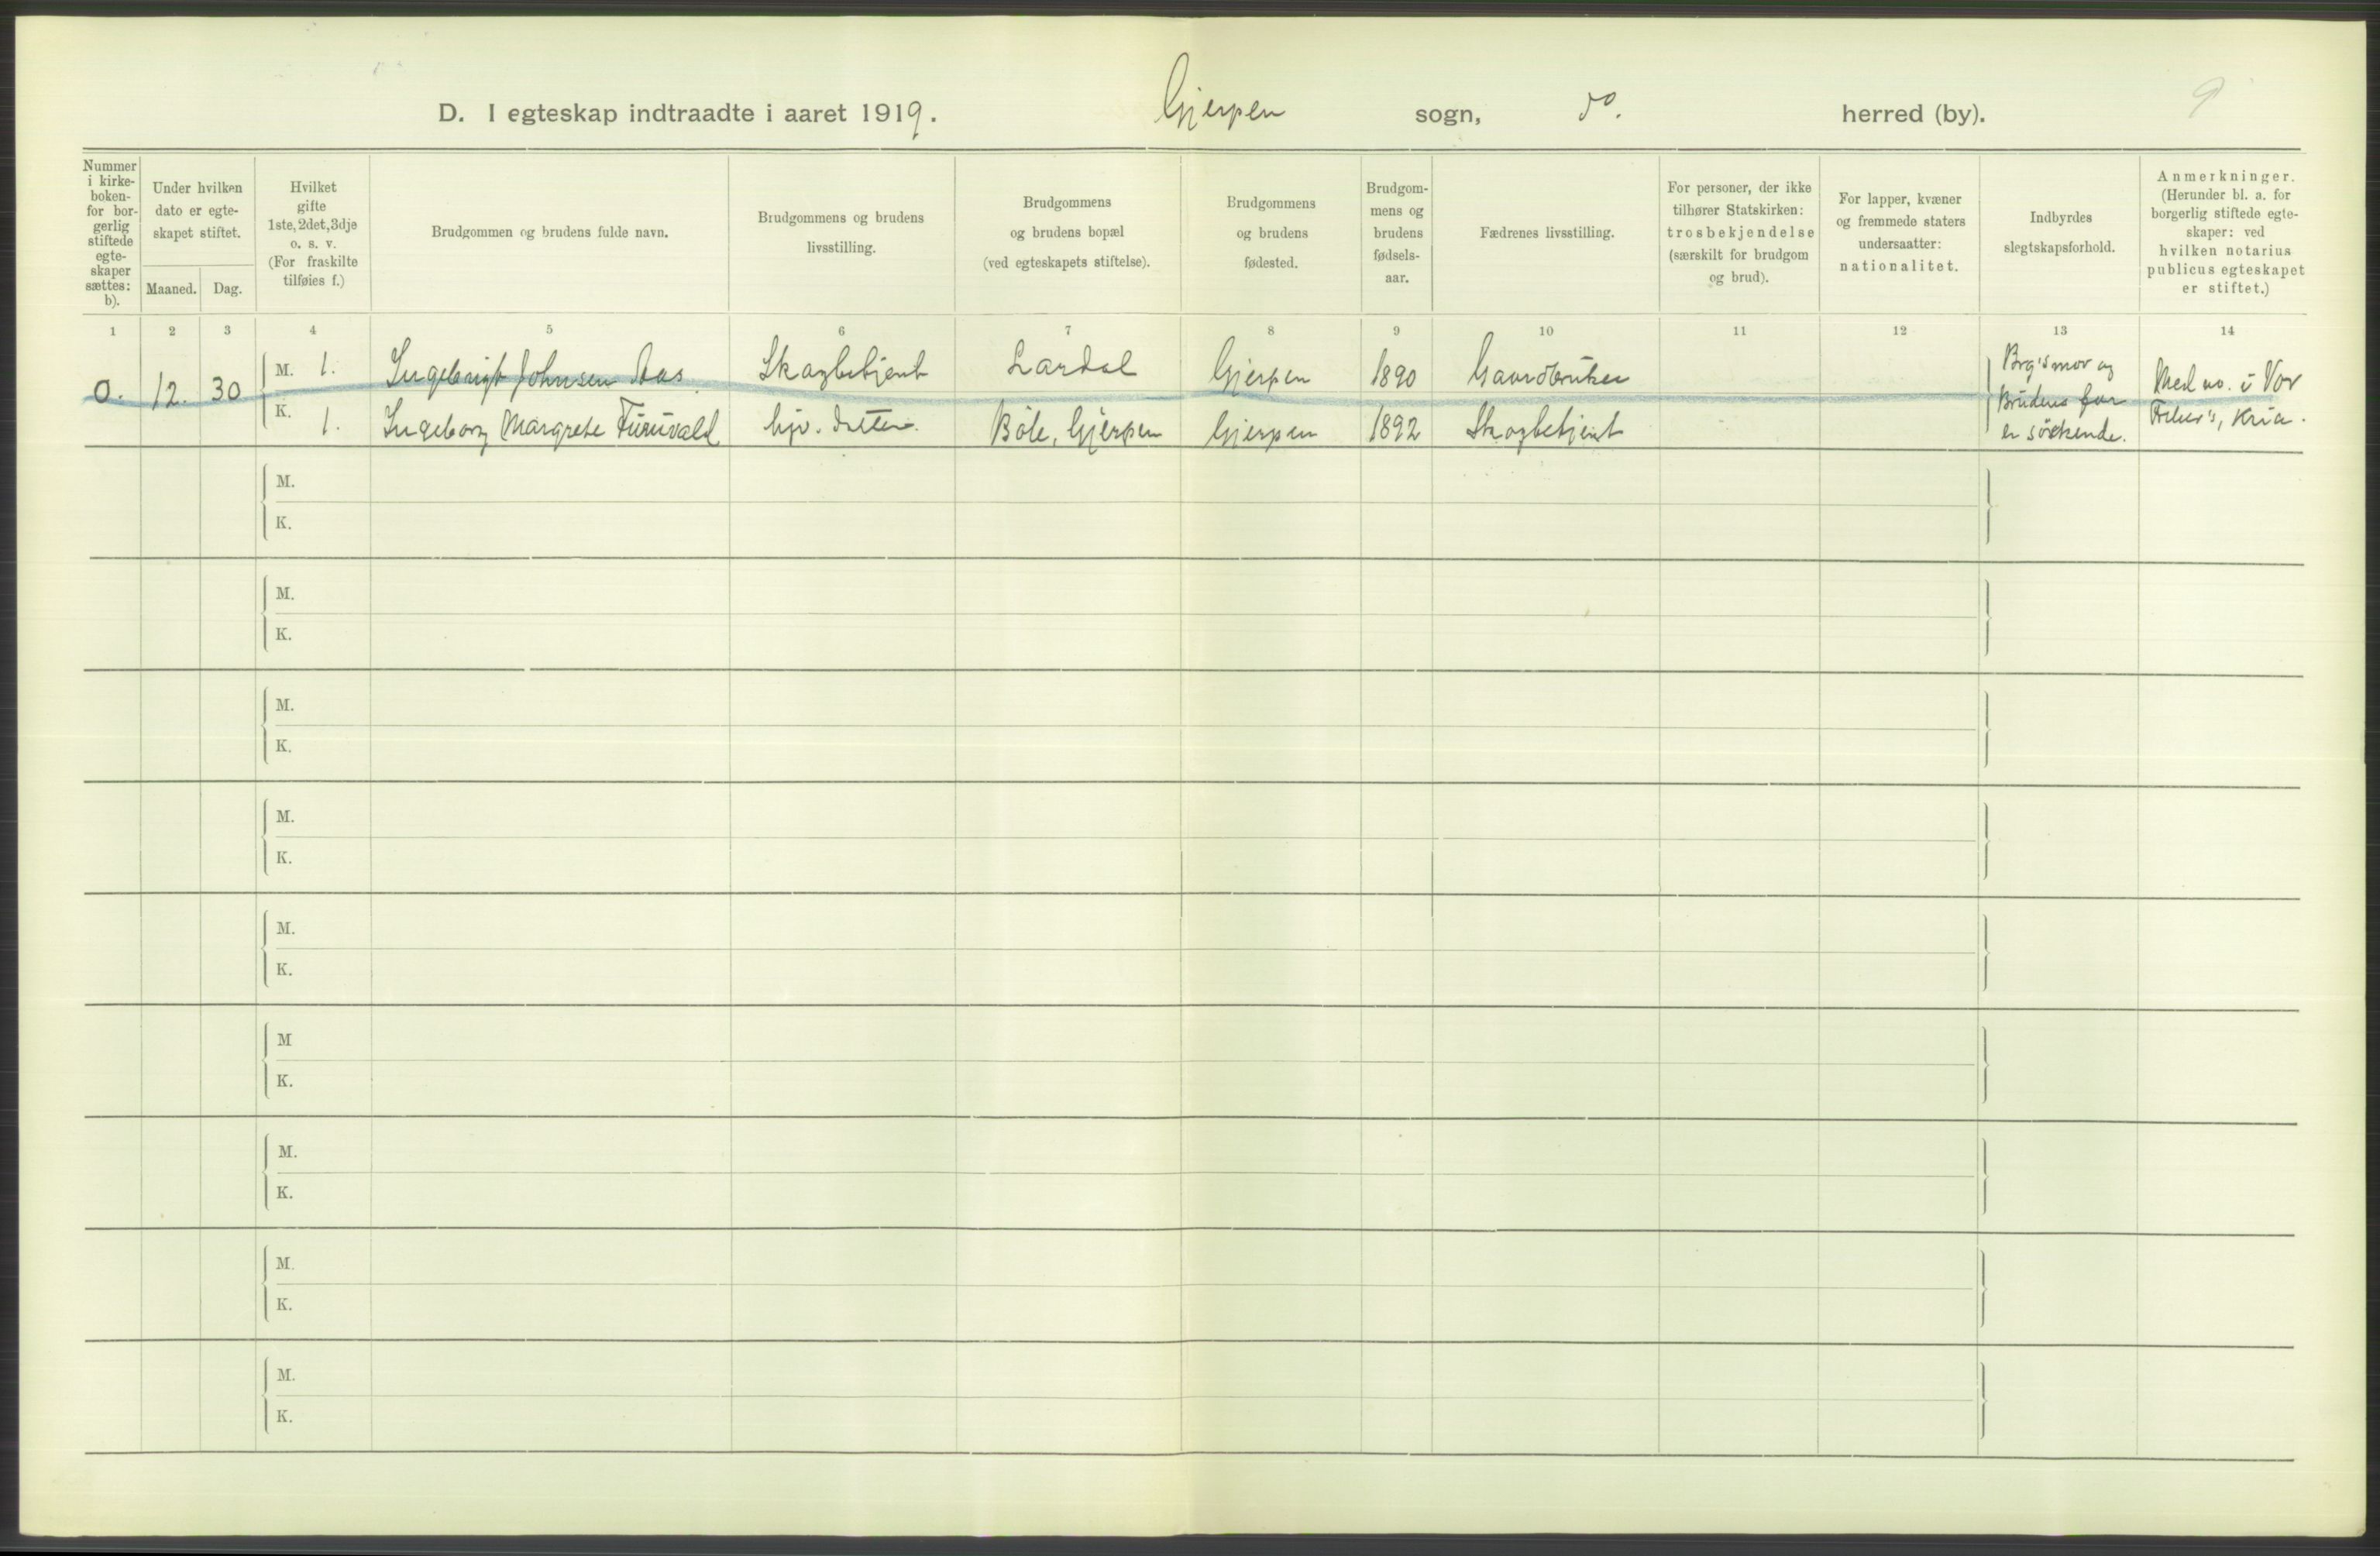 D. I egteskap indtraadte i aaret 1919. Gjerpen sogn, do. herred (by). 9
Nummer i kirkeboken- for borgerlig stiftede egteskaper sættes: b).
Under hvilken dato er egteskapet stiftet.
Maaned. Dag.
Hvilket gifte 1ste, 2det, 3dje o. s. v. (For fraskilte tilføies f.)
Brudgommen og brudens fulde navn.
Brudgommens og brudens livsstilling.
Brudgommens og brudens bopæl (ved egteskapets stiftelse).
Brudgommens og brudens fødested.
Brudgommens og brudens fødselsaar.
Fædrenes livsstilling.
For personer, der ikke tilhører Statskirken: trosbekjendelse (særskilt for brudgom og brud).
For lapper, kvæner og fremmede staters undersaatter: nationalitet.
Indbyrdes slegtskapsforhold.
Anmerkninger. (Herunder bl. a. for borgerlig stiftede egteskaper: ved hvilken notarius publicus egteskapet er stiftet.)
1 2 3 4 5 6 7 8 9 10 11 12 13 14
0. 12. 30 M. 1. Ingebrigt Johnsen Aas Skogbetjent Lardal Gjerpen 1890 Gaardbruker
K. 1. Ingeborg Margrete Furuvald hjv. datter. Böle, Gjerpen Gjerpen 1892 Skogbetjent
Brg's mor og
Brudens far
er söskende.
Med no. i Vor
Frelser's, Kria.
M.
K.
M.
K.
M.
K.
M.
K.
M.
K.
M
K.
M.
K.
M.
K.
M.
K.